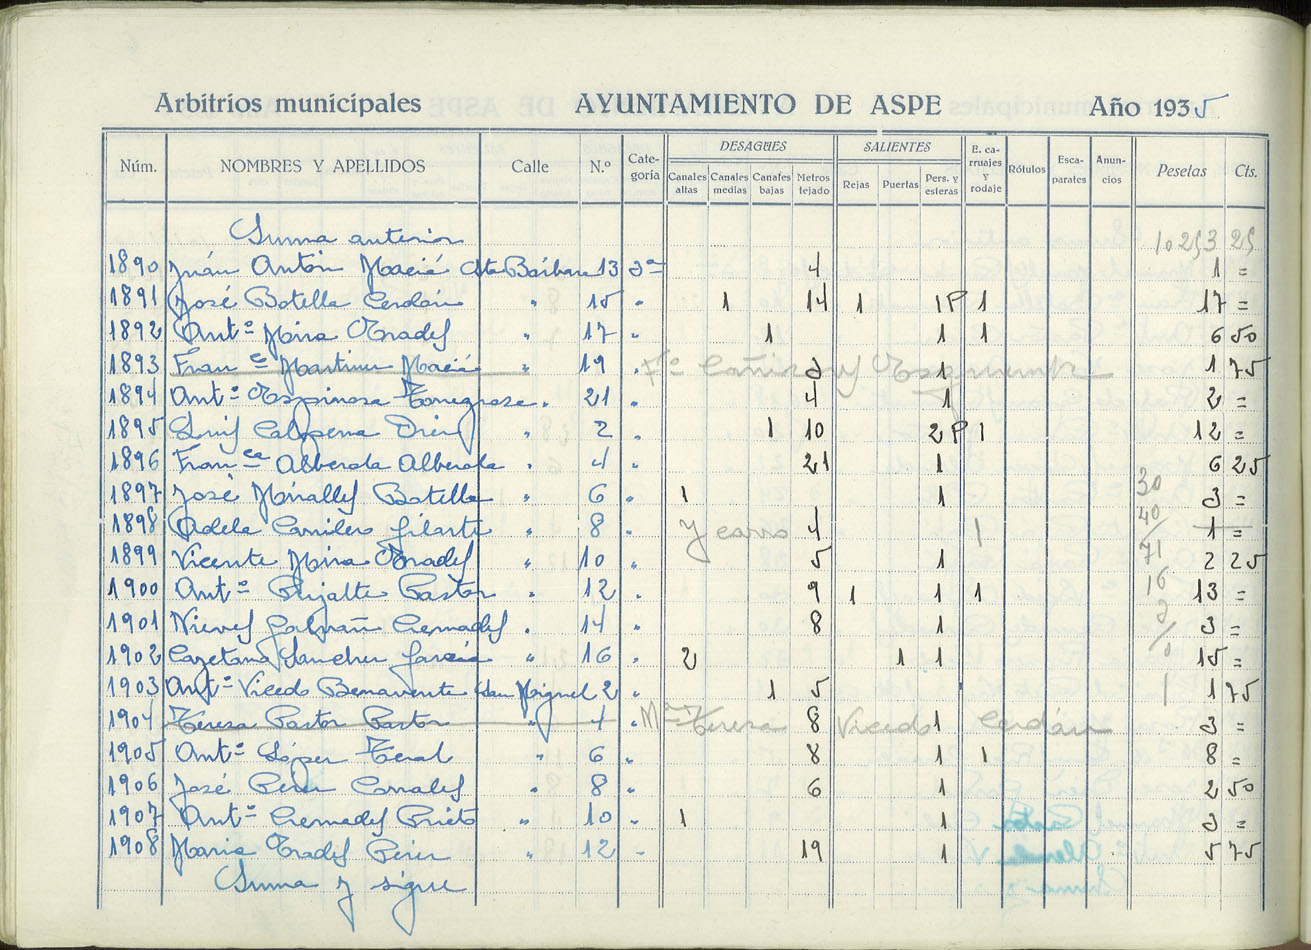 Arbitrios municipales AYUNTAMIENTO DE ASPE Año 1935
Núm. NOMBRES Y APELLIDOS Calle N.º Cate-goría DESAGÜES SALIENTES E. ca-rruajes y rodaje Rótulos Esca-parates Anun-cios Pesetas Cts.
Canales altas Canales medias Canales bajas Metros tejado Rejas Puertas Pers. y esteras
Suma anterior 10.253 25
1890 Juán Antón Maciá Sta Bárbara 13 3ª 4 1 =
1891 José Botella Cerdán " 15 " 1 14 1 1P 1 17 =
1892 Antº Mira Pradés " 17 " 1 1 1 6 50
1893 Franca Martinez Maciá " 19 " 3 1 1 75
1894 Antº Espinosa " 21 " 4 1 2 =
1895 Luis Calpena Diez " 2 " 1 10 2P 1 12 =
1896 Franca Alberola Alberola " 4 " 21 1 6 25
1897 José Mirallés Botella " 6 " 1 1 3 =
1898 Adela Gilarte " 8 " y carro 4 1 1 =
1899 Vicente Mira Pradés " 10 " 5 1 2 25
1900 Antº Pujalte Pastor " 12 " 9 1 1 1 13 =
1901 Nieves Galvañ Cremadés " 14 " 8 1 3 =
1902 Cayetana Sanchez García " 16 " 2 1 1 15 =
1903 Antº Vicedo Benavente San Miguel 2 " 1 5 1 75
1904 Teresa Pastor Pastor " 4 " Mª Teresa Vicedo Cerdán 8 1 3 =
1905 Antº López Teral " 6 " 8 1 1 8 =
1906 José Pérez Corralés " 8 " 6 1 2 50
1907 Antº Cremadés Prieto " 10 " 1 1 3 =
1908 Maria Pradés Pérez " 12 " 19 1 5 75
Suma y sigue